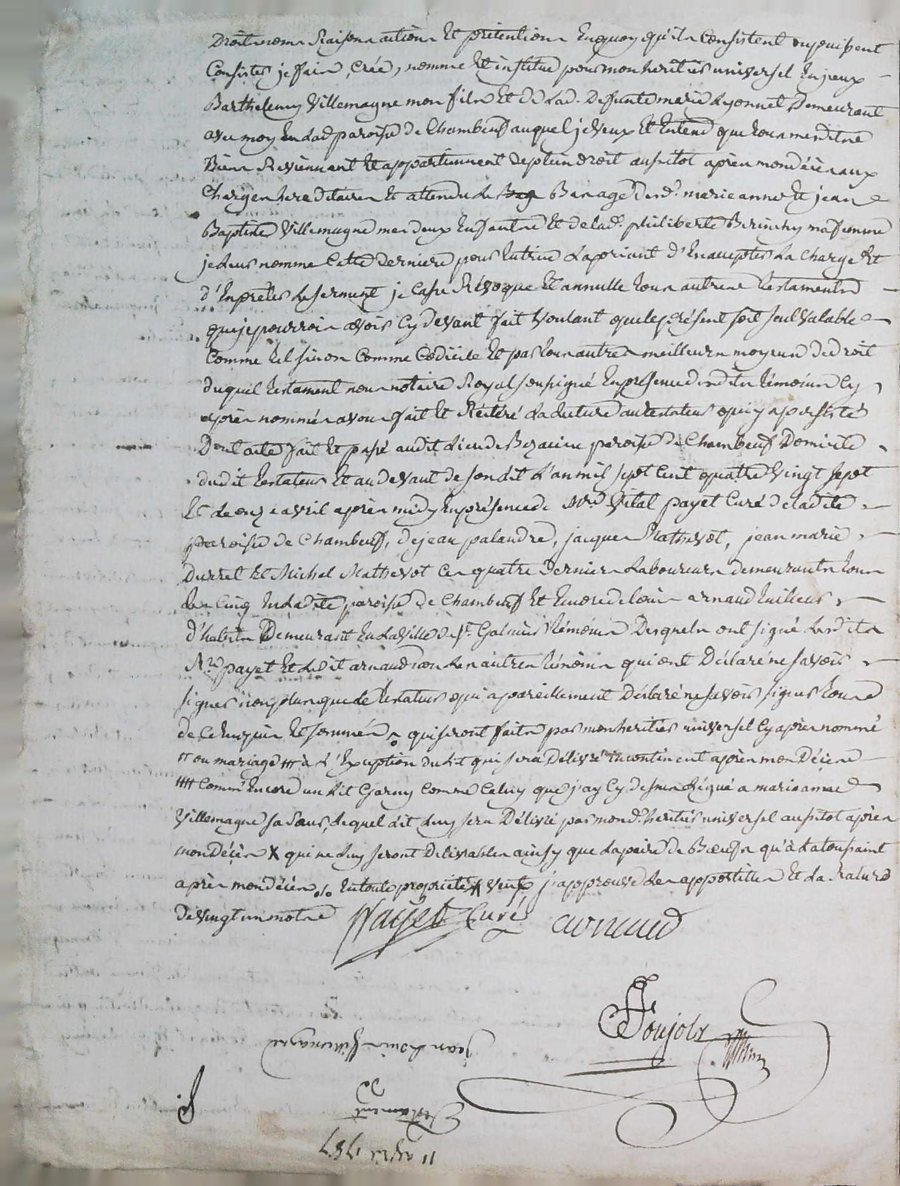 Droits noms Raisons actions Et prétentions En quoy qu'ils Consistent ou puissent
Consister je fais, Crée, nomme Et institue pour mon heritier universel
Barthelemy Villemagne mon fils Et de Lad. Deffunte marie Lyonnet Demeurant
avec moy En Lad. paroisse de Chambeuf auquel je Veux Et Entend que tous mesdits
Biens Reviennent Et appartiennent de plein droit aussitot après mon décès aux
Charges hereditaires Et attendu Le Bas age desd. marie anne Et jean
Baptiste Villemagne mes deux Enfants Et de Lad. philiberte mafemme
je Leurs nomme Cette derniere pour tutrice La priant d'En accepter La Charge Et
d'En preter Le serment je Casse Révoque Et annulle tous autres testaments
que je pourrois avoir Cy devant fait Voulant que Le présent soit seul Valable
Comme tel sinon Comme Codicile Et par tous autres meilleurs moyens de droit
duquel testament nous notaire Royal soussigné En présence desdits témoins Cy
après nommés avons fait Et Réitéré La Lecture au testateur qui y a persisté
Dont acte fait Et passé audit Lieu de paroisse de Chambeuf Domicile
dudit testateur Et au devant de son dit L'an mil sept Cent quatre Vingt sept
Et Le onze avril après midy En présence de Mre Vital payet Curé de Ladite
paroisse de Chambeuf, de jean palandre, jacques Mathevot, jean marie
Durret Et Michel Mathevot Ces quatre derniers Laboureurs demeurants tous
Les Cinq En Ladite paroisse de Chambeuf Et arnaud tailleur
d'habits Demeurant En La Ville de St. Galmier témoins Desquels ont signé Lesdits
Mre payet Et Ledit arnaud non Les autres témoins qui ont Déclaré ne savoir
signer non plus que Le testateur qui a pareillement Déclaré ne savoir signer tous
de Ce Enquis Et sommés qui seront faits par mon heritier universel Cy après nommé
ou mariage à L'Exception du Lit qui sera Délivré incontinent après mon Décès
Comme Encore un Lit Garny Comme Celuy que j'ay Cy dessus Légué a marie anne
Villemagne sa sœur, Lequel Lit Luy sera Délivré par mond. heritier universel aussitot après
mon Décès X qui ne Luy seront Délivrables ainsy que La paire de Bœufs qu'à La toussaint
après mon décès En toute propriété veux j'approuve Les apostilles Et La Rature
de Vingt un notre Payet Curé arnaud
Soujols
jean Louis Villemagne
Testament
De
11 avril 1787